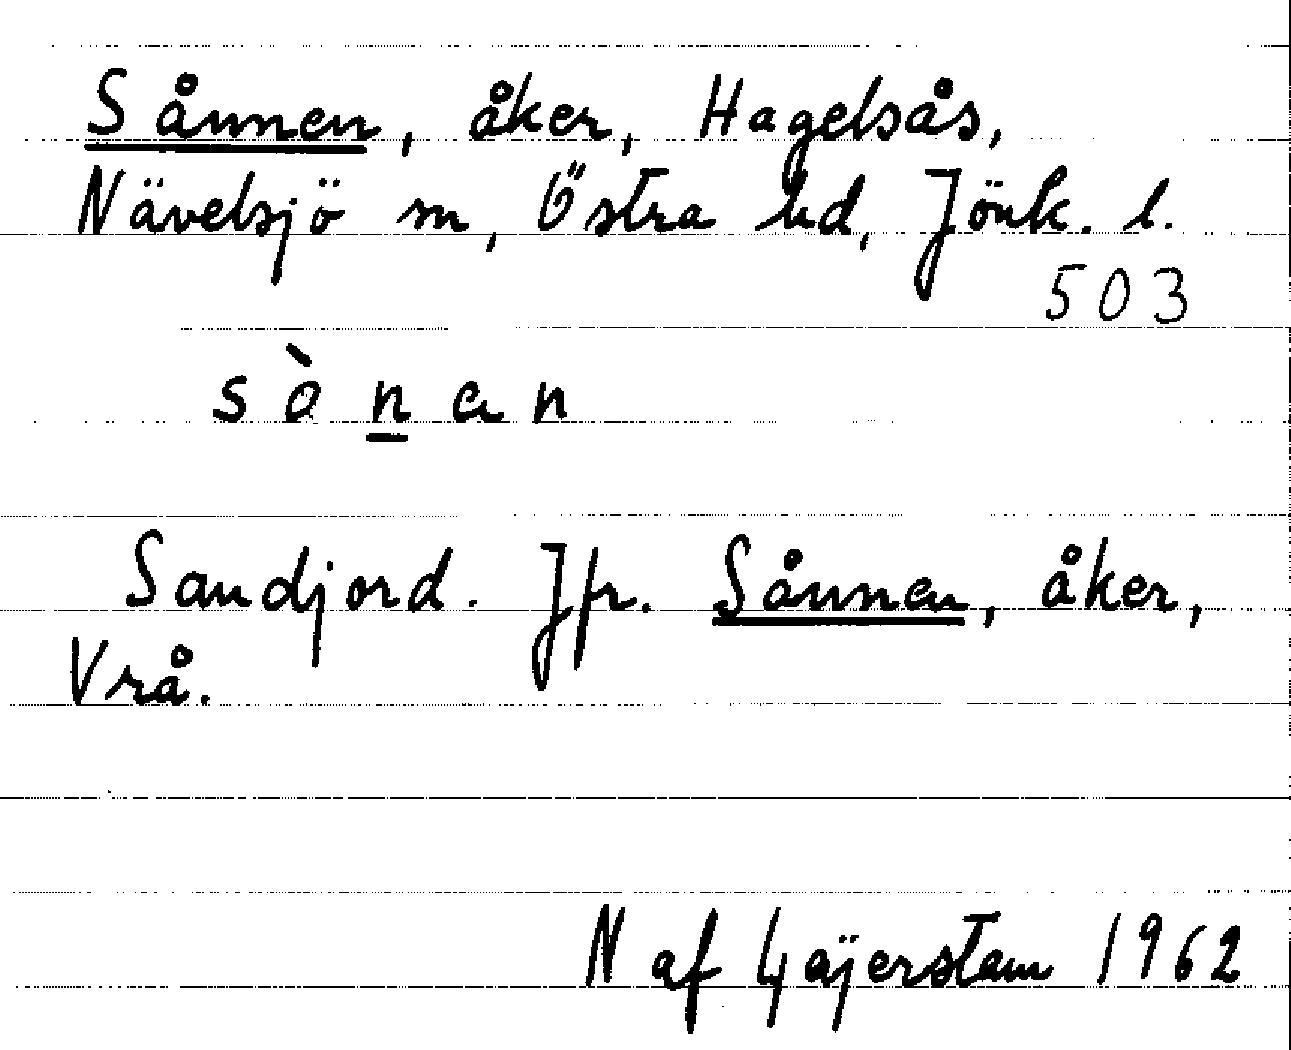 Sånnen, åker, Hagelsås,
Nävelsjö sn, Östra hd, Jönk. l.
503
sò̱nan
Sandjord. Jfr. Sånnen, åker,
Vrå.
N af Gäjerstam 1962